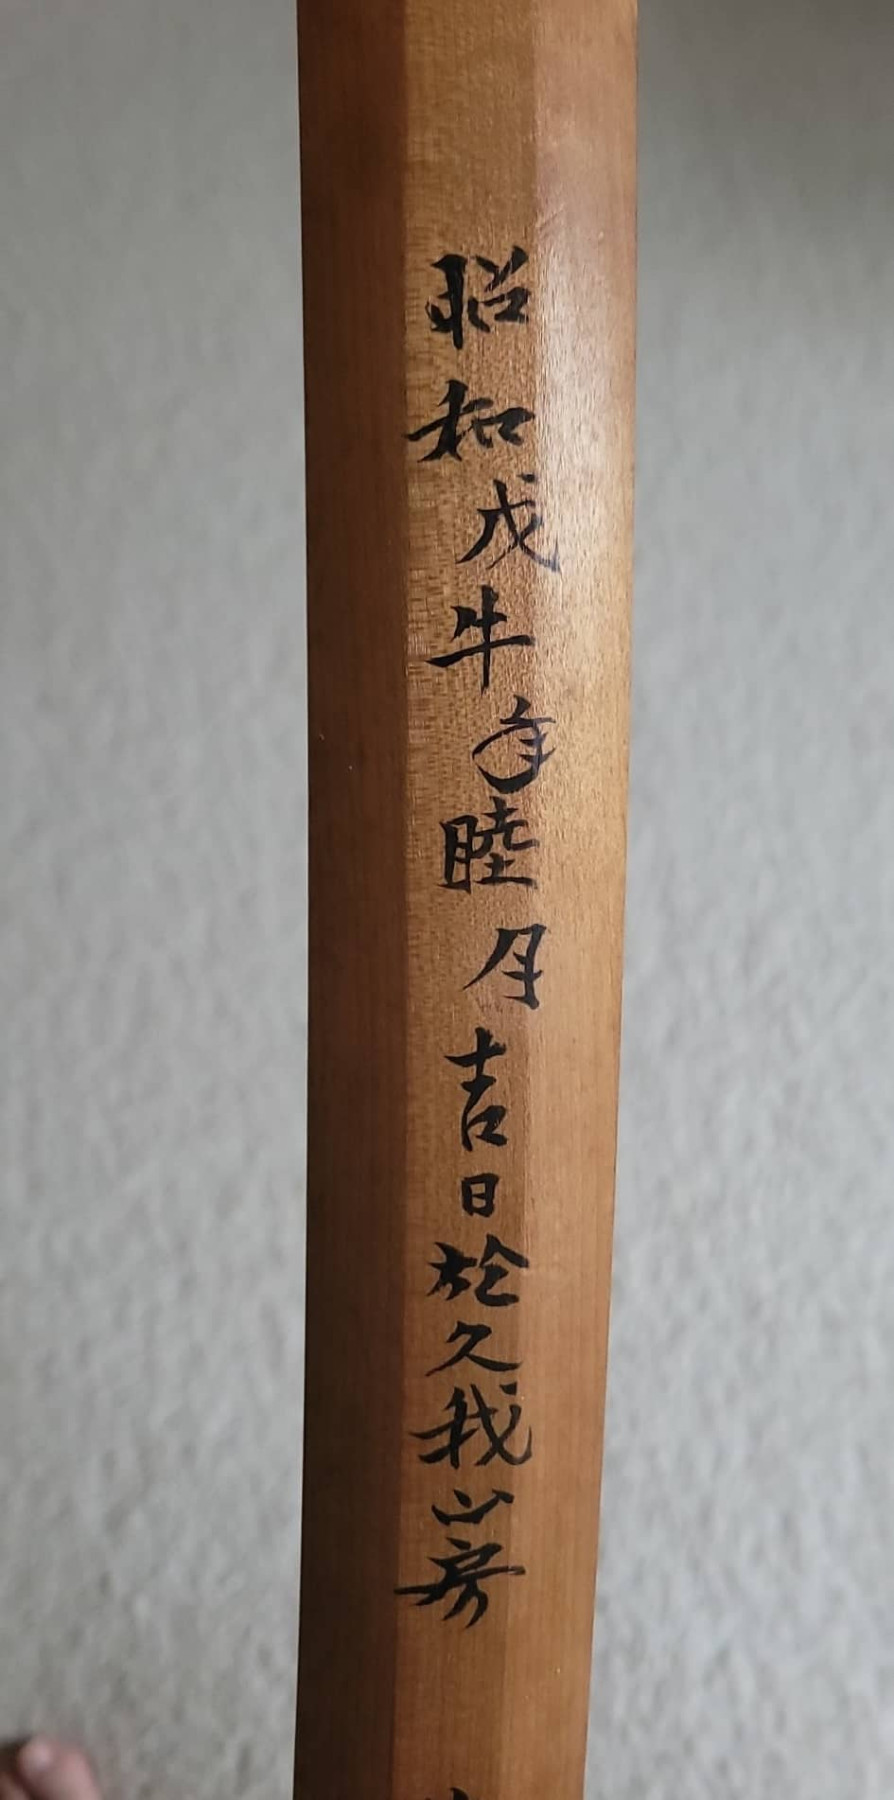 昭和戊午年睦月吉日於久我山房